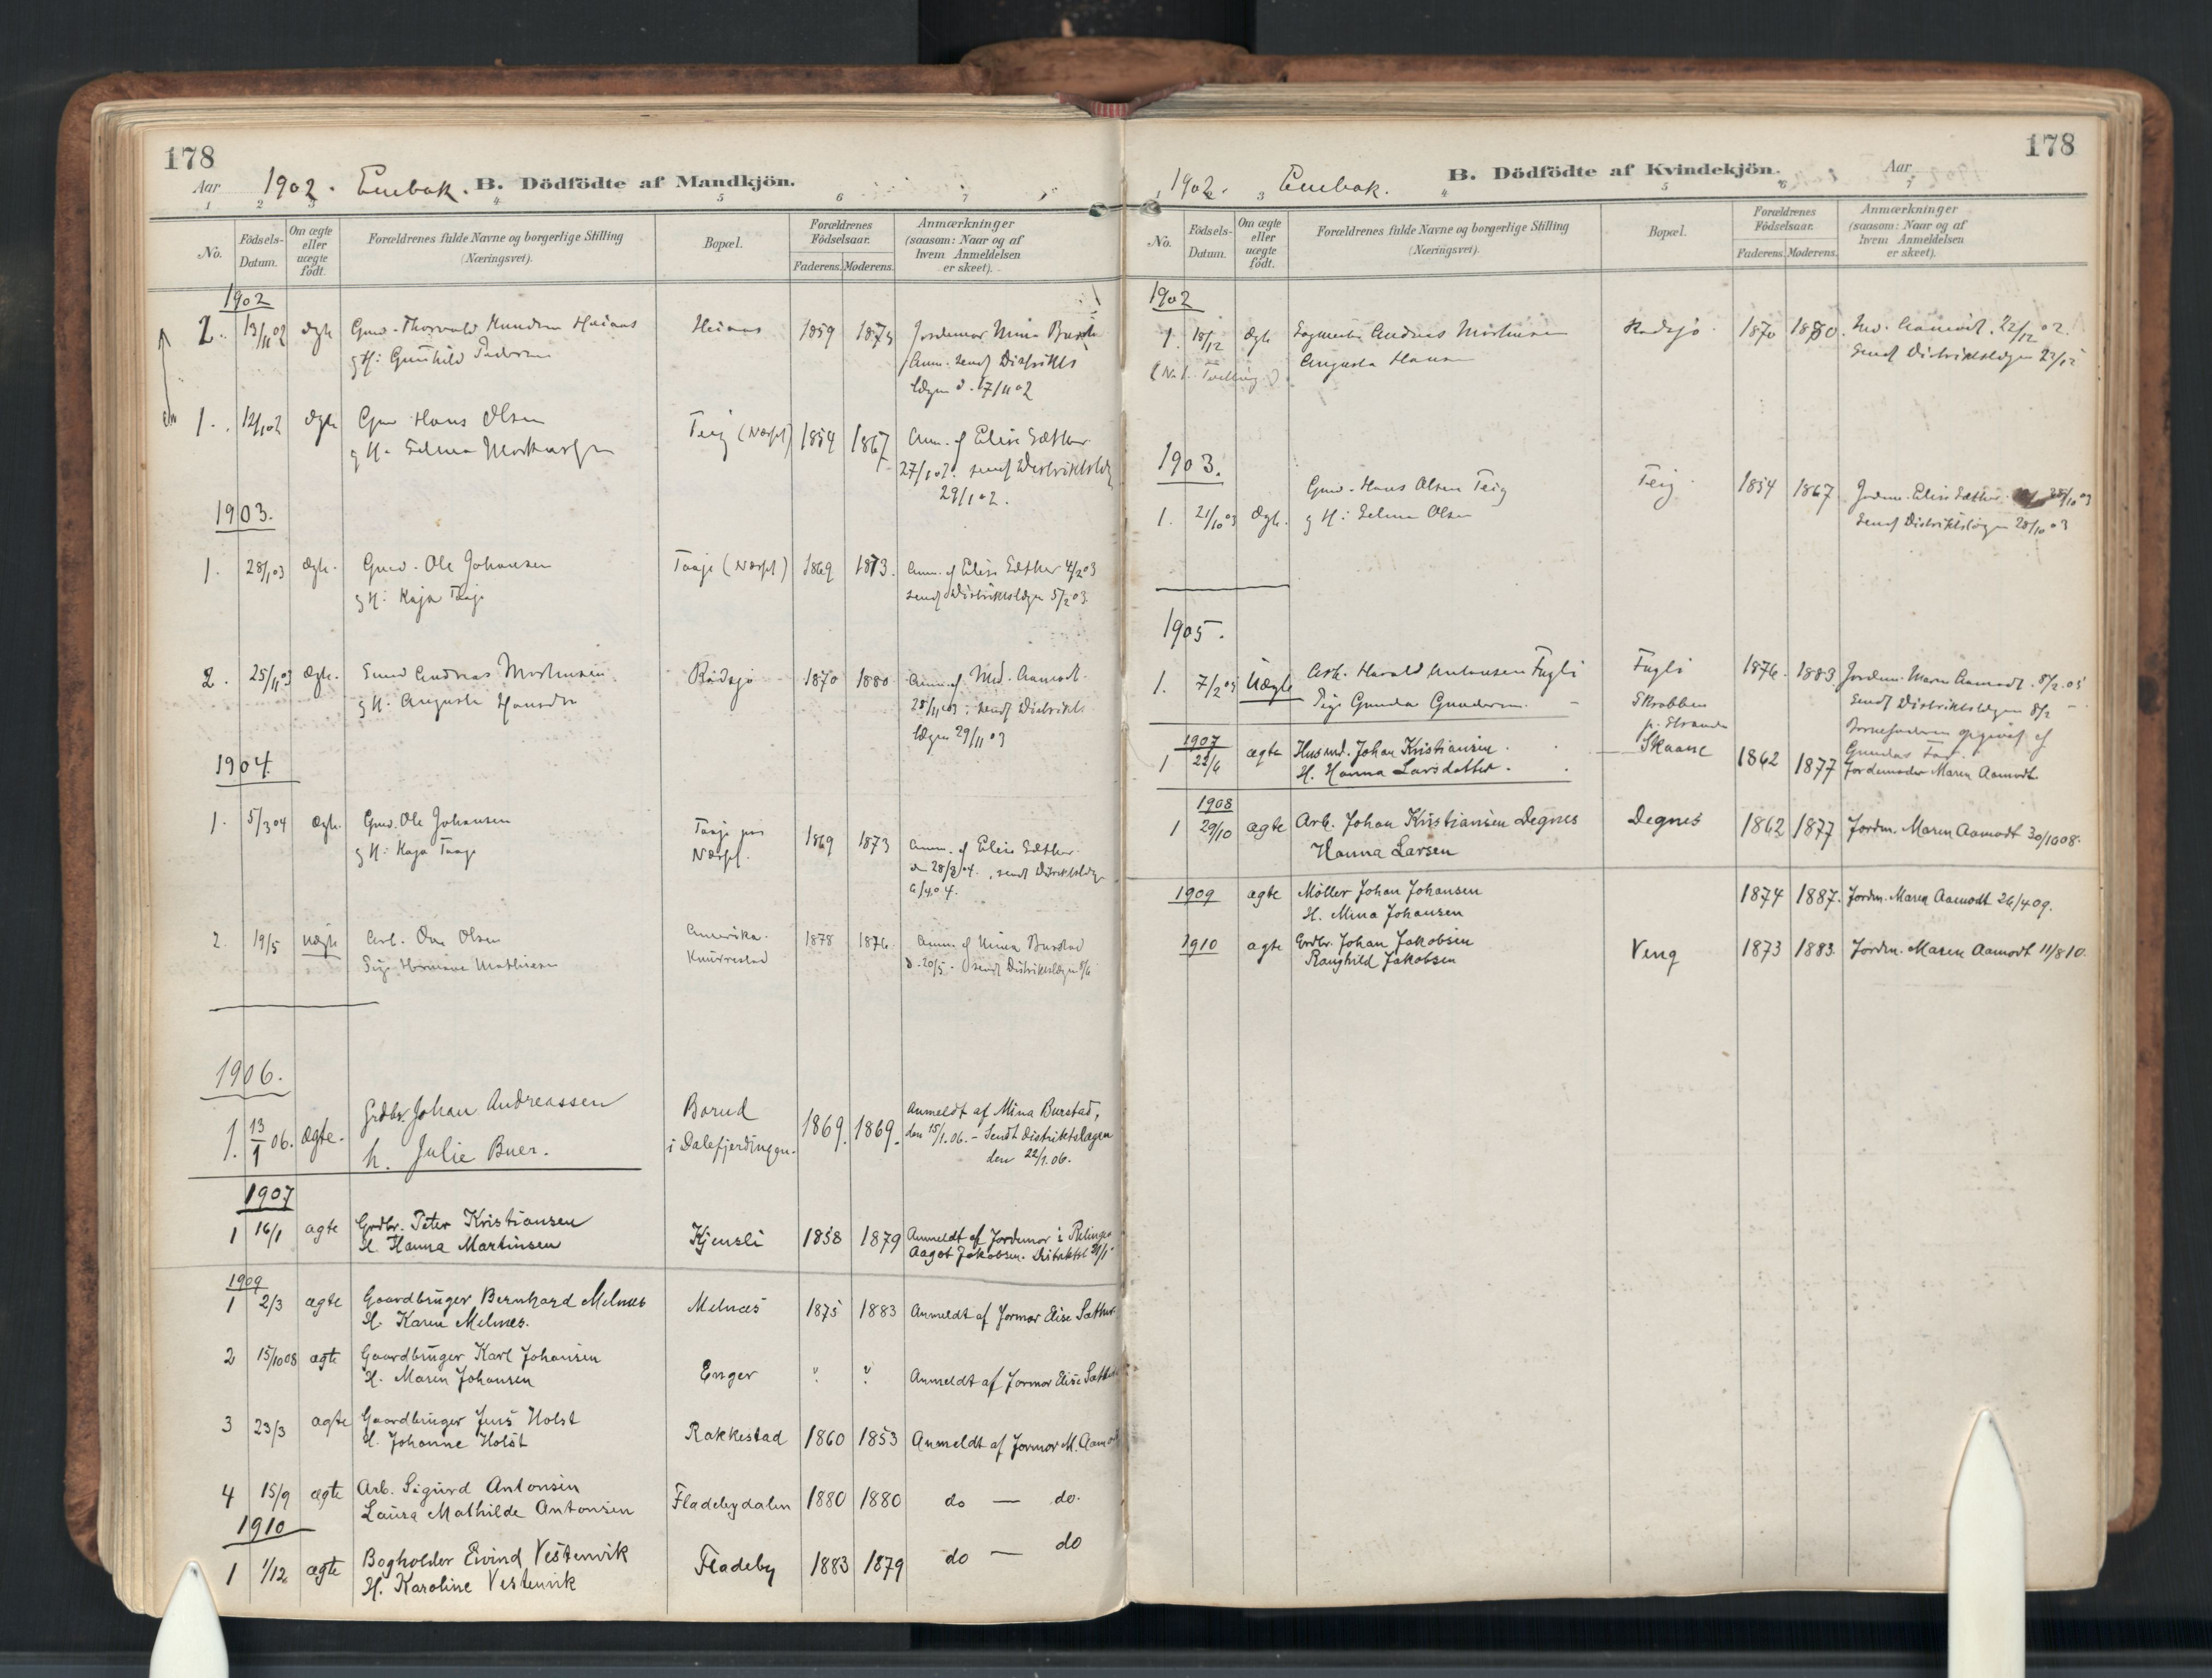 178
Aar 1902. Enebak. B. Dödfödte af Mandkjön.
1 2 3 4 5 6 7
No.
Födsels-
Datum.
Om ægte
eller
uægte
födt.
Forældrenes fulde Navne og borgerlige Stilling
(Næringsvei).
Bopæl.
Forældrenes
Födselsaar.
Faderens. Moderens.
Anmærkninger
(saasom: Naar og af
hvem Anmeldelsen
er skeet).
1902
2. 13/11 02 ægte Gmd. Thorvald Knudsen 1859
g H: Gunhild Pedersen
Jordemor Mina
Anm. sendt Distrikts
lægen d. 17/11 02
1. 12/1 02 ægte Gmd Hans Olsen Teig (Næspt) 1854 1867 Anm. af Elise Sæther
g H. Selma
27/1 02. sendt Distriktslæg
29/1 02.
1903.
1. 28/1 03 ægte. Gmd. Ole Johansen Taaje (Næspt) 1869 1873. Anm. af Elise Sæther 4/2 03
g H: Kaja Taaje sendt Distriktslægen 5/2 03.
2. 25/11 03 ægte. Andreas Mortensen Rådsjø 1870 1880 Anm. af Md. Aamodt
g H: Augusta Hansdtr 28/11 03; sendt Distrikts
lægen 29/11 03
1904.
1. 5/3 04 ægte. Gmd. Ole Johansen Taaje pr 1869 1873 Anm. af Elise Sæther
g H: Kaja Taaje Næspt.
d 28/3 04., sendt Distriktslæg
6/4 04.
2. 19/5 uægte Arb. Olsen Amerika. 1878 1876. Anm. af Mina Burstad
Pige Hermine Mathisen Knurrestad d. 20/5. sendt Distriktslægen
1906.
1. 13/1 06. ægte. Grdbr. Johan Andreassen Borud 1869. 1869. Anmeldt af Mina Burstad,
h. Julie Buer. i Dalefjerdingen. den 15/1. 06. - Sendt distriktslægen
den 22/1. 06.
1907
1 16/1 ægte Grdbr. Peter Kristiansen Kjensli 1858 1879 Anmeldt af Jordemor i Rælingen
H. Hanna Martinsen Aagot Jakobsen.
1909
1 2/3 ægte Gaardbruger Bernhard Melnes Melnæs 1875 1883 Anmeldt af Jormor Elise Sæther
H. Karen Melnæs.
2 15/10 08 ægte Gaardbruger Karl Johansen Enger " " Anmeldt af Jormor Elise Sæther
H. Maren Johansen
3 23/3 ægte Gaardbruger Jens Holst Rakkestad 1860 1853 Anmeldt af Jormor M. Aamodt
H. Johanne Holst
4 15/9 ægte Arb. Sigurd Antonsen Fladebydalen 1880 1880 do — do.
Laura Mathilde Antonsen
1910
1 1/12 ægte Bogholder Eivind Vestenvik Fladeby 1883 1879 do — do
H. Karoline Vestenvik
178
1902. Enebak. B. Dödfödte af Kvindekjön. Aar
1 2 3 4 5 6 7
No.
Födsels-
Datum.
Om ægte
eller
uægte
födt.
Forældrenes fulde Navne og borgerlige Stilling
(Næringsvei).
Bopæl.
Forældrenes
Födselsaar.
Faderens. Moderens.
Anmærkninger
(saasom: Naar og af
hvem Anmeldelsen
er skeet).
1902
1. 18/12 ægte Andreas Mortensen Rådsjø. 1870 1880. Md. Aamodt. 22/12 02.
(No 1. Tvilling) Augusta Hansen Sendt Distriktslægen 22/12
1903.
1. 21/10 03 ægte. Gmd. Hans Olsen Teig Teig. 1854 1867 Jordm. Elise Sæther 28/10 03
g H: Selma Olsen Sendt Distriktslægen 28/10 03
1905.
1. 7/2 05 Uægte Arb. Harald Antonsen Fugli Fugli 1876. 1883. Jordm. Maren Aamodt. 8/2. 05
Pige Gunda Gundersen. Skrabben Sendt Distriktslægen 8/2
p. Strande Barnefaderen opgivet af
Gundas Far.
1907
1 22/6 ægte Husmd. Johan Kristiansen. Skaane 1862 1877 Jordemoder Maren Aamodt
H. Hanna Larsdatter.
1908
1 29/10 ægte Arb. Johan Kristiansen Degnes Degnes 1862 1877 Jordm. Maren Aamodt 30/10 08.
Hanna Larsen
1909 ægte Møller Johan Johansen 1874 1887. Jordm. Maren Aamodt 26/4 09.
H. Mina Johansen
1910 ægte Grdbr. Johan Jakobsen Veng 1873 1883. Jordm. Maren Aamodt 11/8 10.
Ranghild Jakobsen